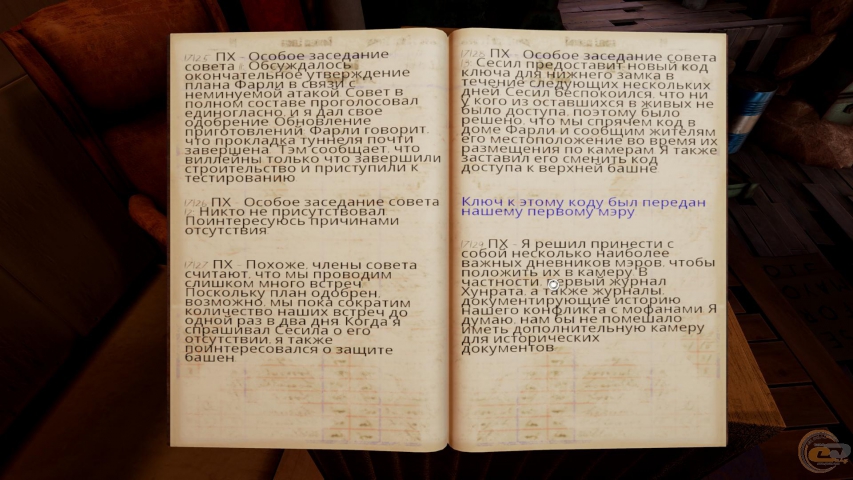 ПХ - Особое заседание
совета. Обсуждалось
окончательное утверждение
плана Фарли в связи с
неминуемой атакой Совет в
полном составе проголосовал
единогласно, и я дал свое
одобрение Обновление
приготовлений: Фарли говорит,
что прокладка туннеля почти
завершена. Тэм сообщает, что
виллейны только что завершили
строительство и приступили к
тестированию
ПХ - Особое заседание совета
Никто не присутствовал
Поинтересуюсь причинами
отсутствия
ПХ - Похоже, члены совета
считают, что мы проводим
слишком много встреч
Поскольку план одобрен,
возможно, мы пока сократим
количество наших встреч до
одной раз в два дня Когда я
спрашивал Сесила о его
отсутствии, я также
поинтересовался о защите
башен
ПХ - Особое заседание совета
Сесил предоставит новый код
ключа для нижнего замка в
течение следующих нескольких
дней Сесил беспокоился, что ни
у кого из оставшихся в живых не
было доступа, поэтому было
решено, что мы спрячем код в
доме Фарли и сообщим жителям
его местоположение во время их
размещения по камерам Я также
заставил его сменить код
доступа к верхней башне
Ключ к этому коду был передан
нашему первому мэру
ПХ - Я решил принести с
собой несколько наиболее
важных дневников мэров, чтобы
положить их в камеру В
частности, первый журнал
Хунрата, а также журналы,
документирующие историю
нашего конфликта с мофанами Я
думаю, нам бы не помешало
иметь дополнительную камеру
для исторических
документов